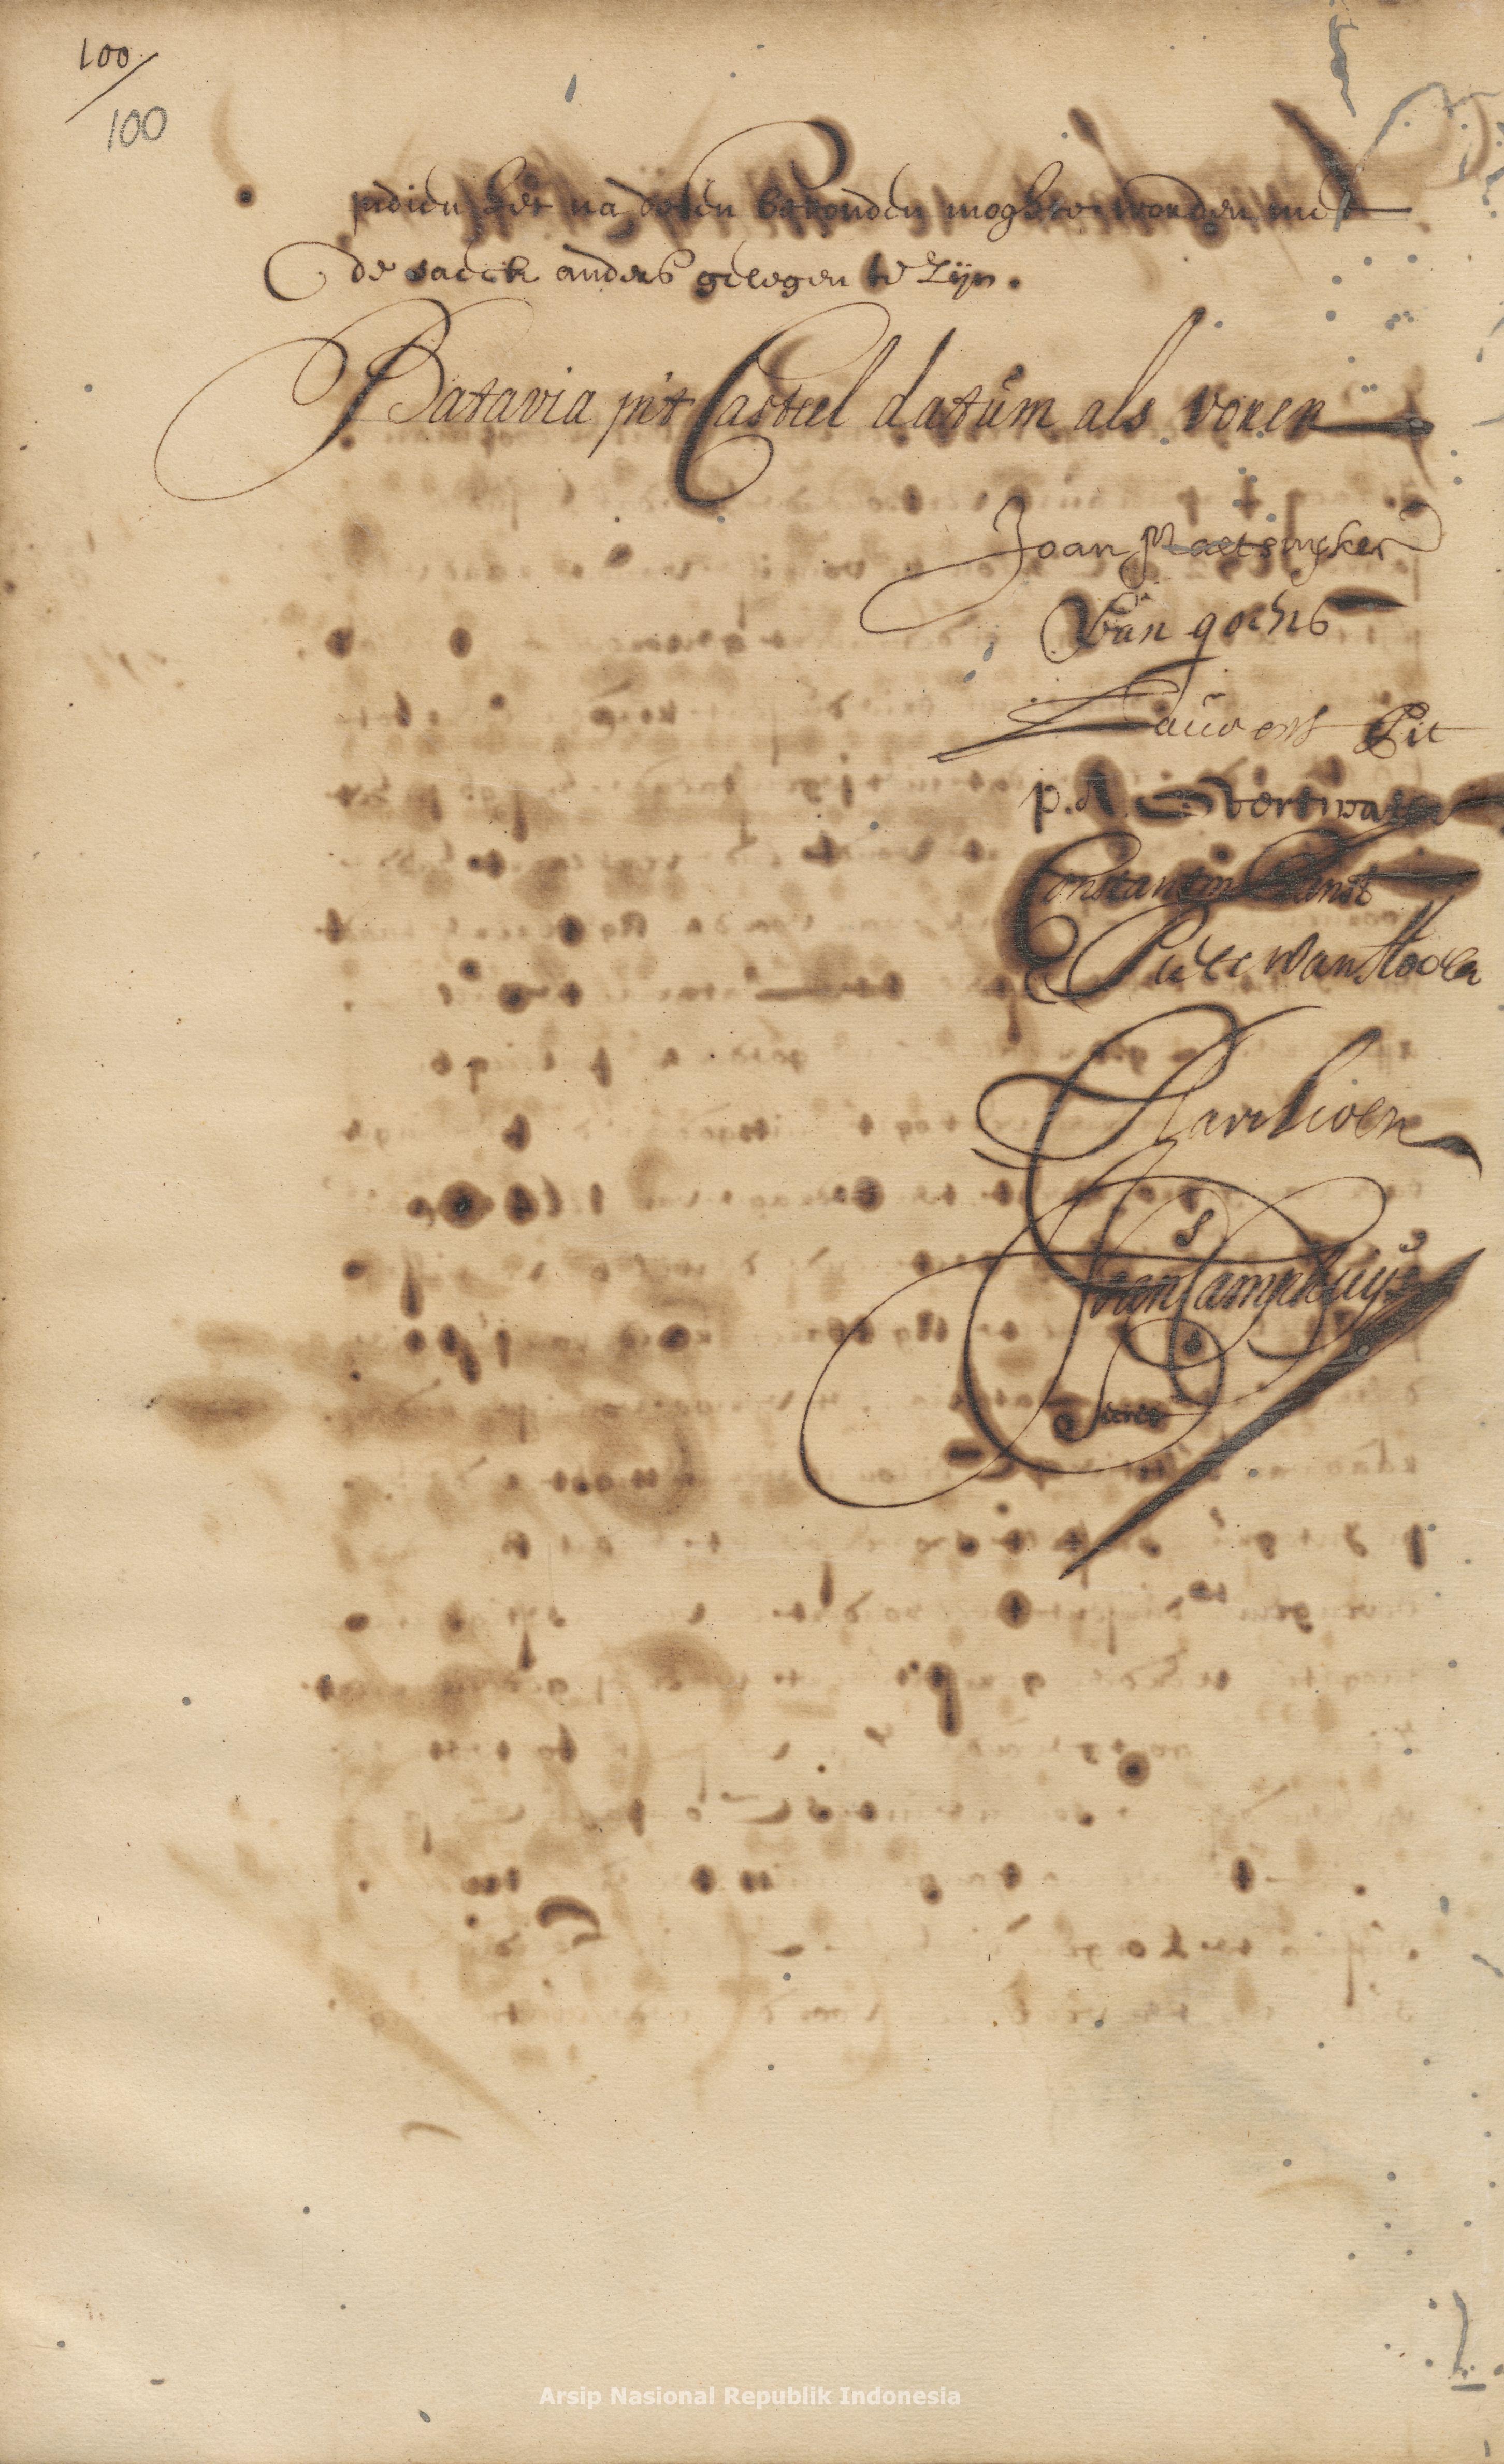 100
100
indien het na desen bevonden moghte worden met
de saeck anders gelegen te zijn.
Batavia int Casteel datum als voren
Joan Maetsuyker
Van goens
Lauwerens Pit
p. A. Overtwater
Constantin Ranst
Pieter van Hoorn
S Harthoen
Joan Camphuys
Secrets
Arsip Nasional Republik Indonesia